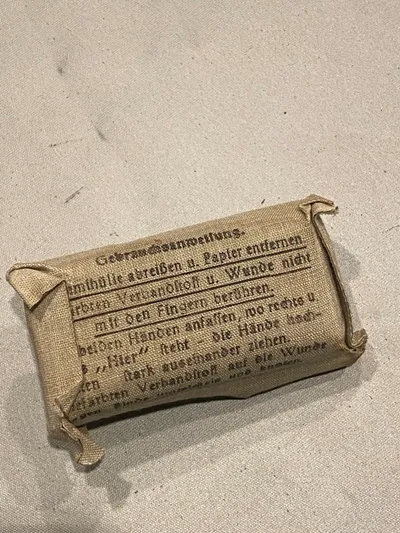 Gebrauchsanweisung.
amthülle abreißen u. Papier entfernen.
ärbten Verbandstoff u. Wunde nicht
mit den Fingern berühren.
beiden Händen anfassen, wo rechts u.
„Hier" steht - die Hände hoch-
ten - stark auseinander ziehen.
efärbten Verbandstoff auf die Wunde
gen, Binde umwickeln und